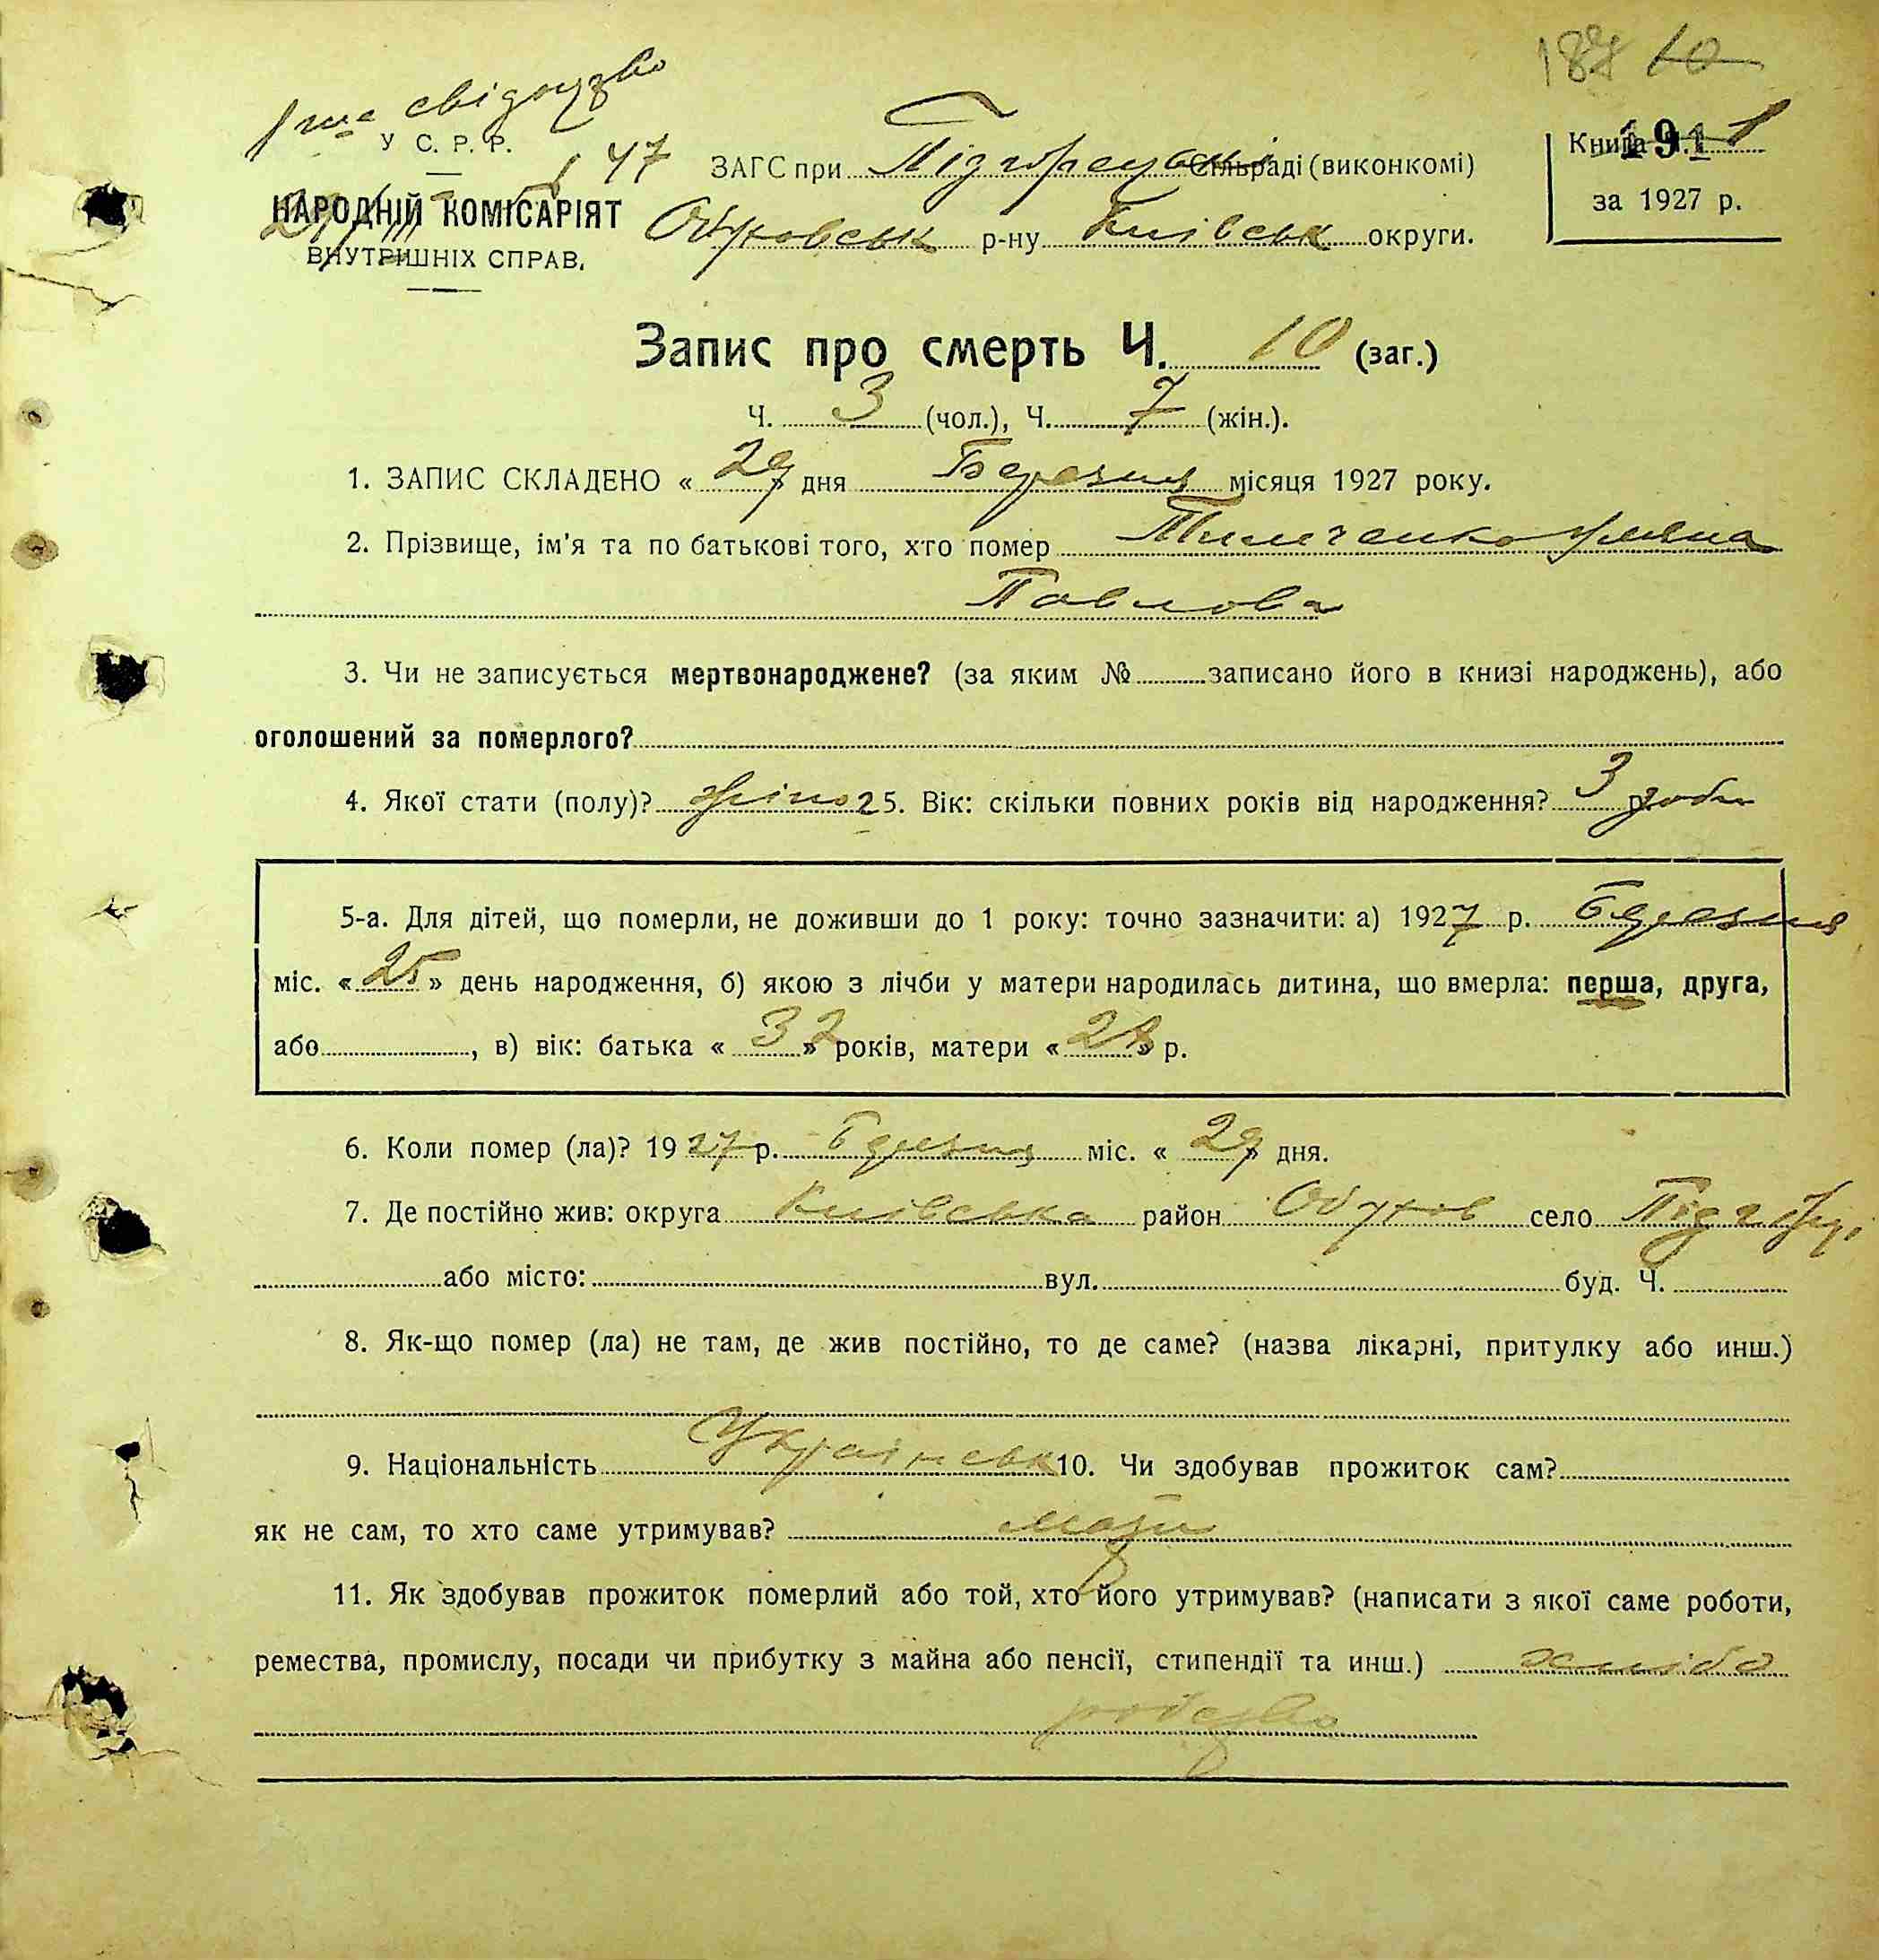 187 10
свідоцтво
У С. Р. Р.
47 ЗАГС при Підгорецьк Сільраді (виконкомі)
Книга Ч. 1
191
НАРОДНІЙ КОМІСАРІЯТ
ВНУТРІШНІХ СПРАВ.
Обуховськ р-ну Київськ округи.
за 1927 р.
Запис про смерть Ч. 10 (заг.)
Ч. 3 (чол.), Ч. 7 (жін.).
1. ЗАПИС СКЛАДЕНО « 29 » дня Березня місяця 1927 року.
2. Прізвище, ім'я та по батькові того, хто помер Тимченко Уляна
Павлова
3. Чи не записується мертвонароджене? (за яким № записано його в книзі народжень), або
оголошений за померлого?
4. Якої стати (полу)? жіно 5. Вік: скільки повних років від народження? 3 доби
5-а. Для дітей, що померли, не доживши до 1 року: точно зазначити: а) 1927 р. Березня
міс. « 25 » день народження, б) якою з лічби у матери народилась дитина, що вмерла: перша, друга,
або , в) вік: батька « 32 » років, матери « 28 » р.
6. Коли помер (ла)? 1927 р. Березня міс. « 29 » дня.
7. Де постійно жив: округа Київська район Обухов село Підгірці
або місто: вул. буд. Ч.
8. Як-що помер (ла) не там, де жив постійно, то де саме? (назва лікарні, притулку або инш.)
9. Національність Українськ 10. Чи здобував прожиток сам?
як не сам, то хто саме утримував? мати
11. Як здобував прожиток померлий або той, хто його утримував? (написати з якої саме роботи,
ремества, промислу, посади чи прибутку з майна або пенсії, стипендії та инш.) хлібо
робство